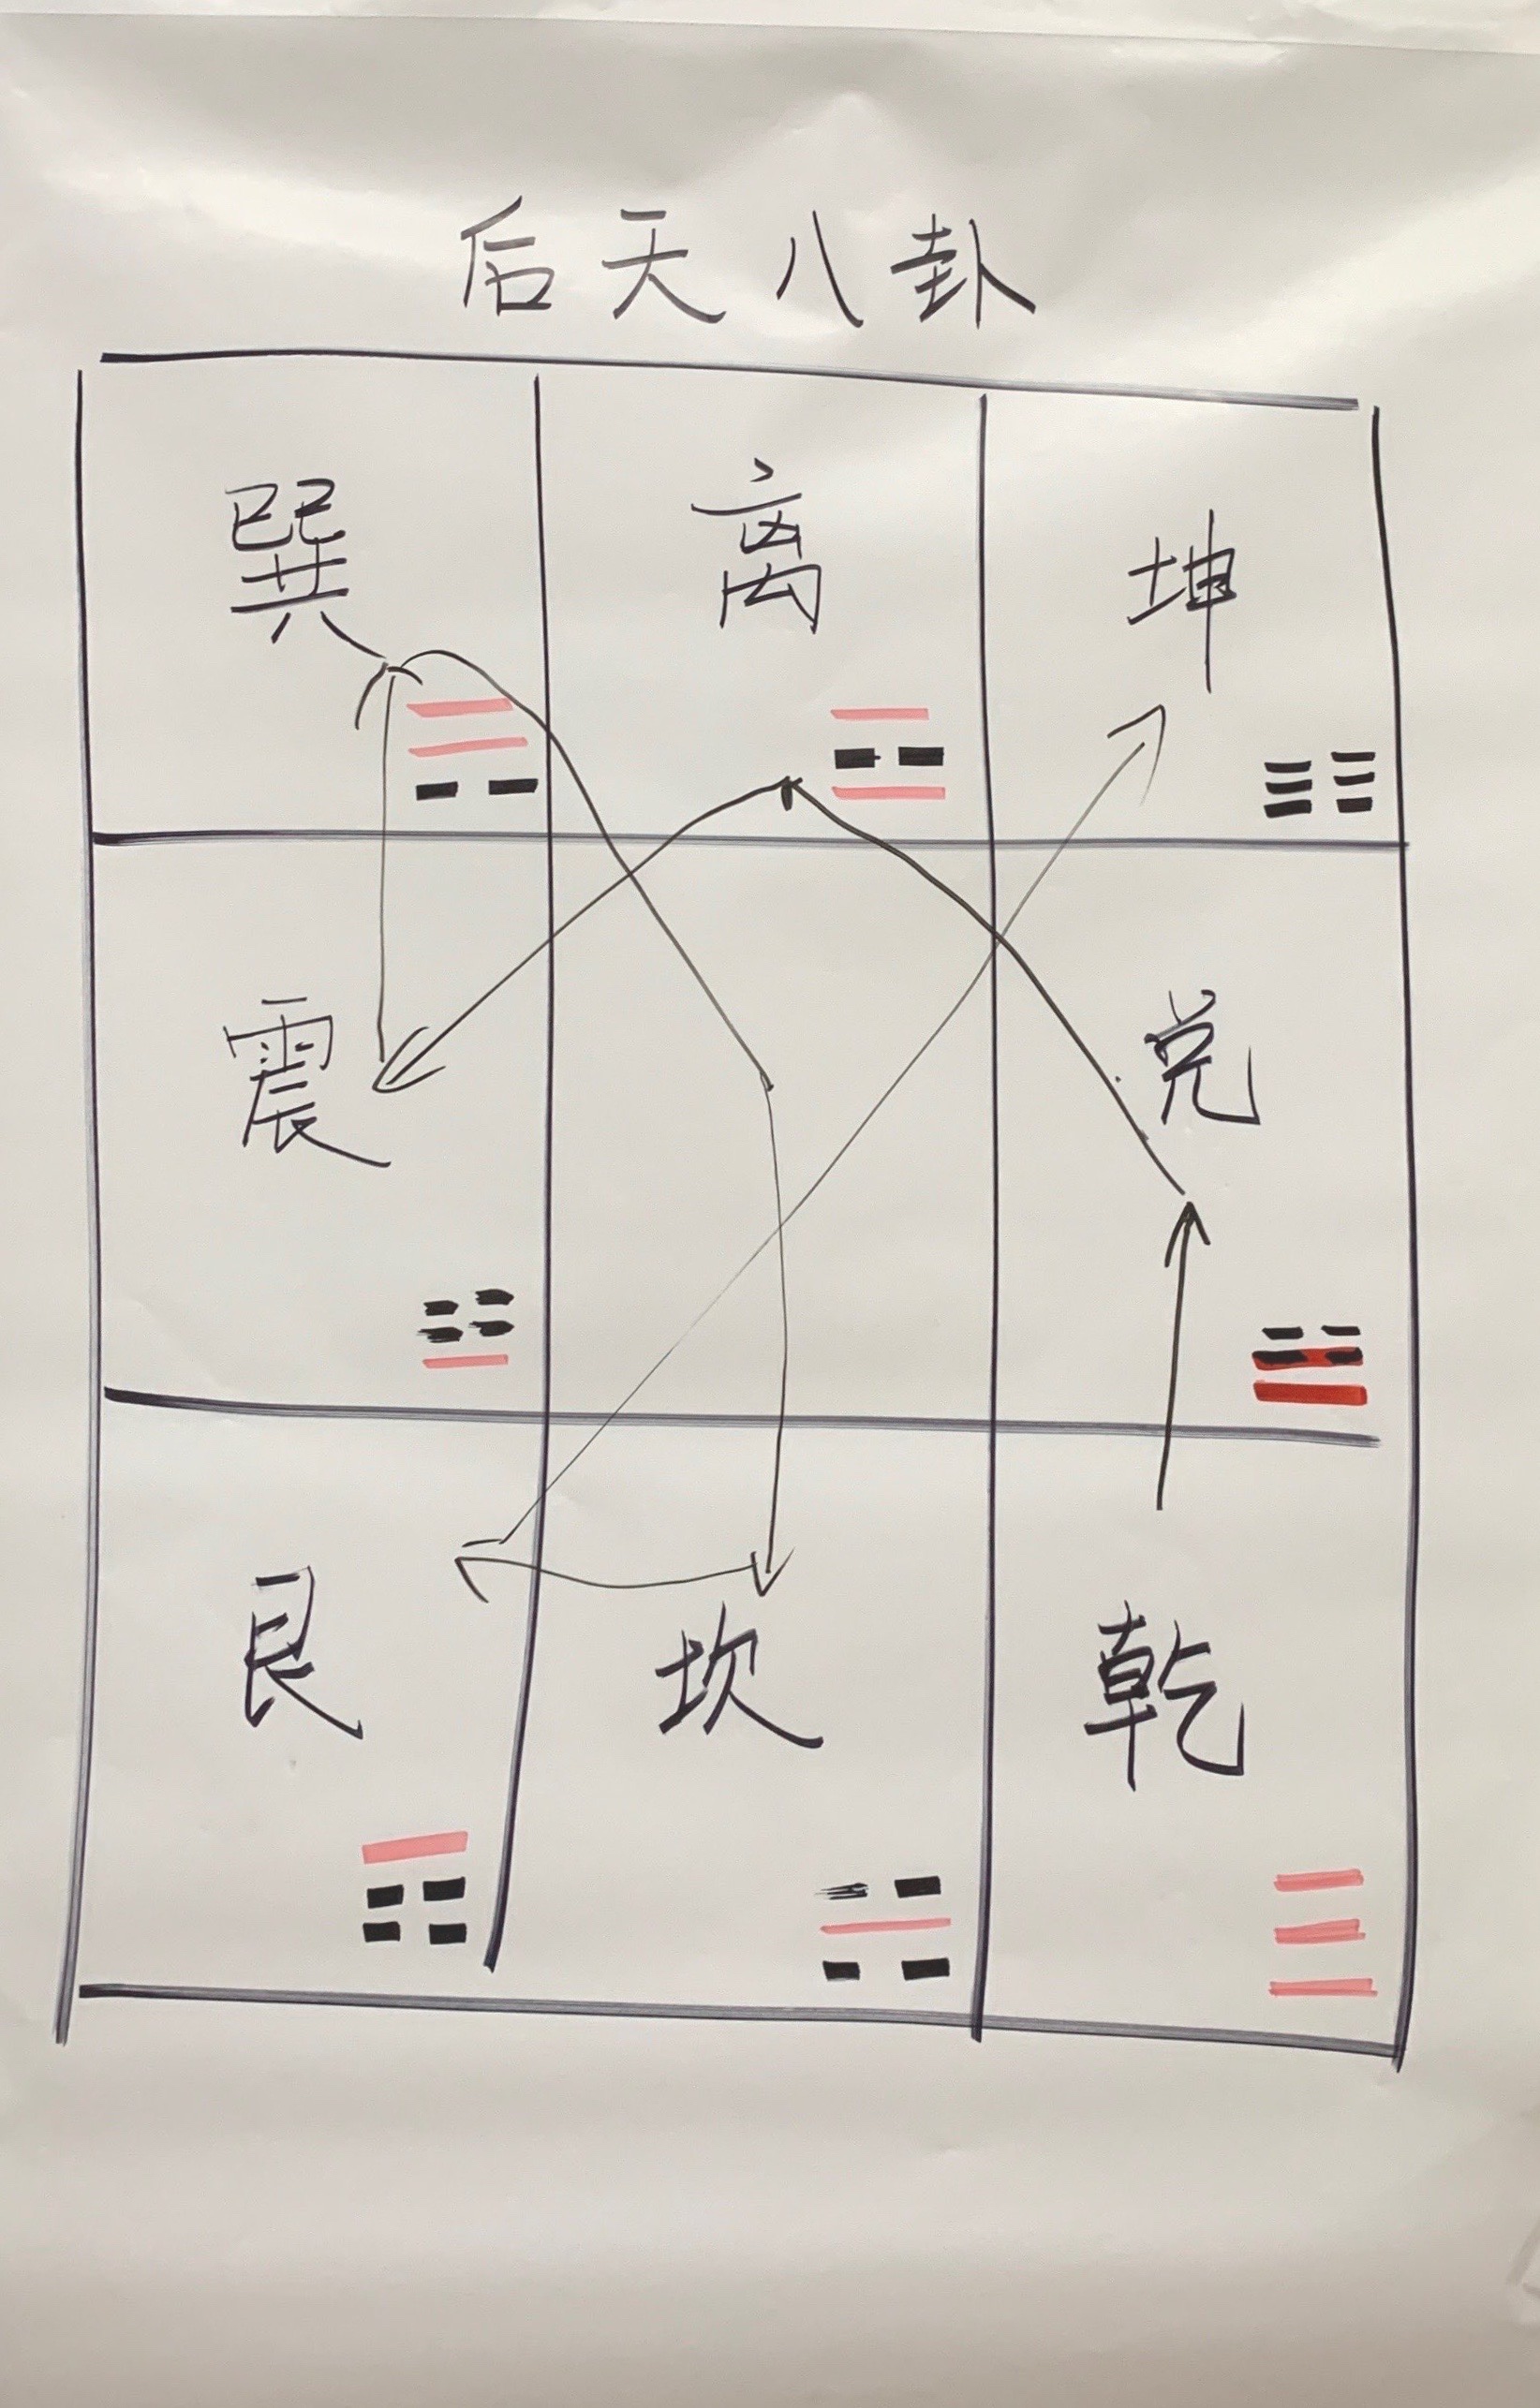 后天八卦
巽 离 坤
震 兑
艮 坎 乾